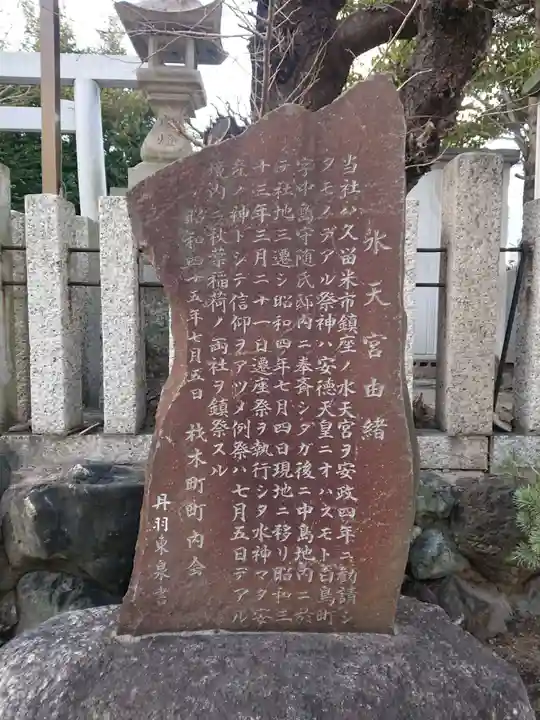 水天宮由緒
当社ハ久留米市鎮座ノ水天宮ヲ安政四年ニ勧請シ
タモノデアル祭神ハ安徳天皇ニオハスモト白鳥町
字中島守随氏邸内ニ奉斉シタガ後ニ中島地内ニ於
テ社地三遷シ昭和四年七月四日現地ニ移リ昭和三
十三年三月二十一日遷座祭ヲ執行シタ水神マタ安
産ノ神トシテ信仰ヲアツメ例祭ハ七月五日デアル
境内ニ秋葉稲荷ノ両社ヲ鎮祭スル
昭和四十五年七月五日 杁木町町内会
丹羽東泉書